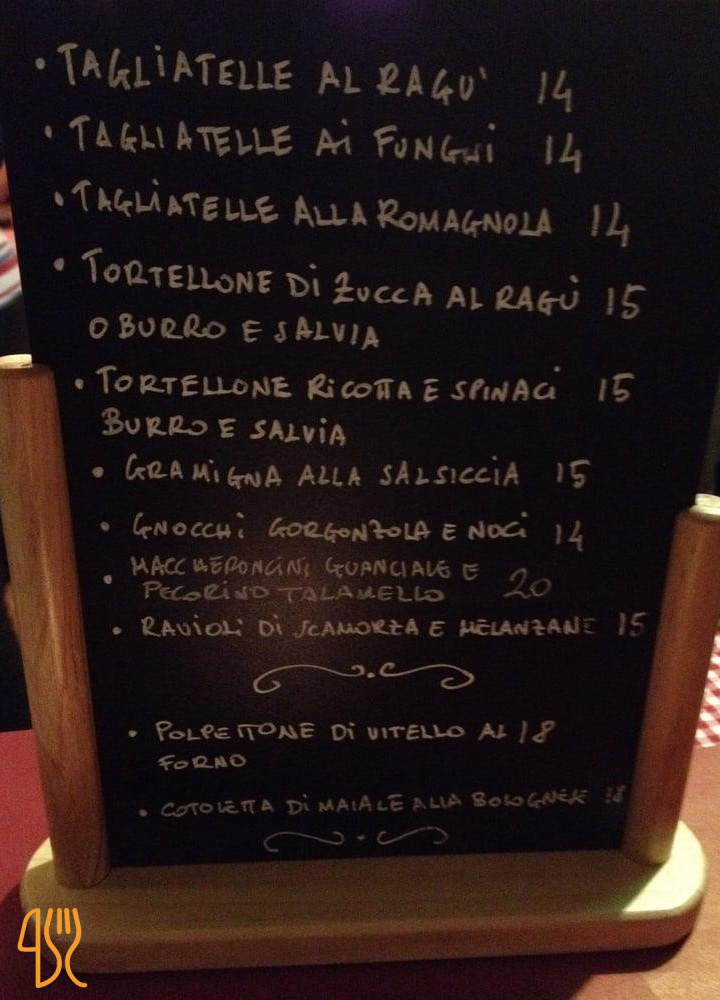 • TAGLIATELLE AL RAGU' 14
• TAGLIATELLE Ai FUNGHi 14
• TAGLIATELLE ALLA ROMAGNOLA 14
• TORTELLONE Di ZUCCA AL RAGÙ 15
O BURRO E SALVIA
• TORTELLONE RiCOTTA E SPINACi 15
BURRO E SALViA
• GRAMiGNA ALLA SALSICCIA 15
• GNOCCHi GORGONZOLA E NOCi 14
• MACCHERONCINI GUANCIALE E
PECORINO TALAMELLO 20
• RAVIOLi Di SCAMORZA E MELANZANE 15
• POLPETTONE Di VITELLO AL 18
FORNO
• COTOLETTA Di MAIALE ALLA BOLOGNESE 18